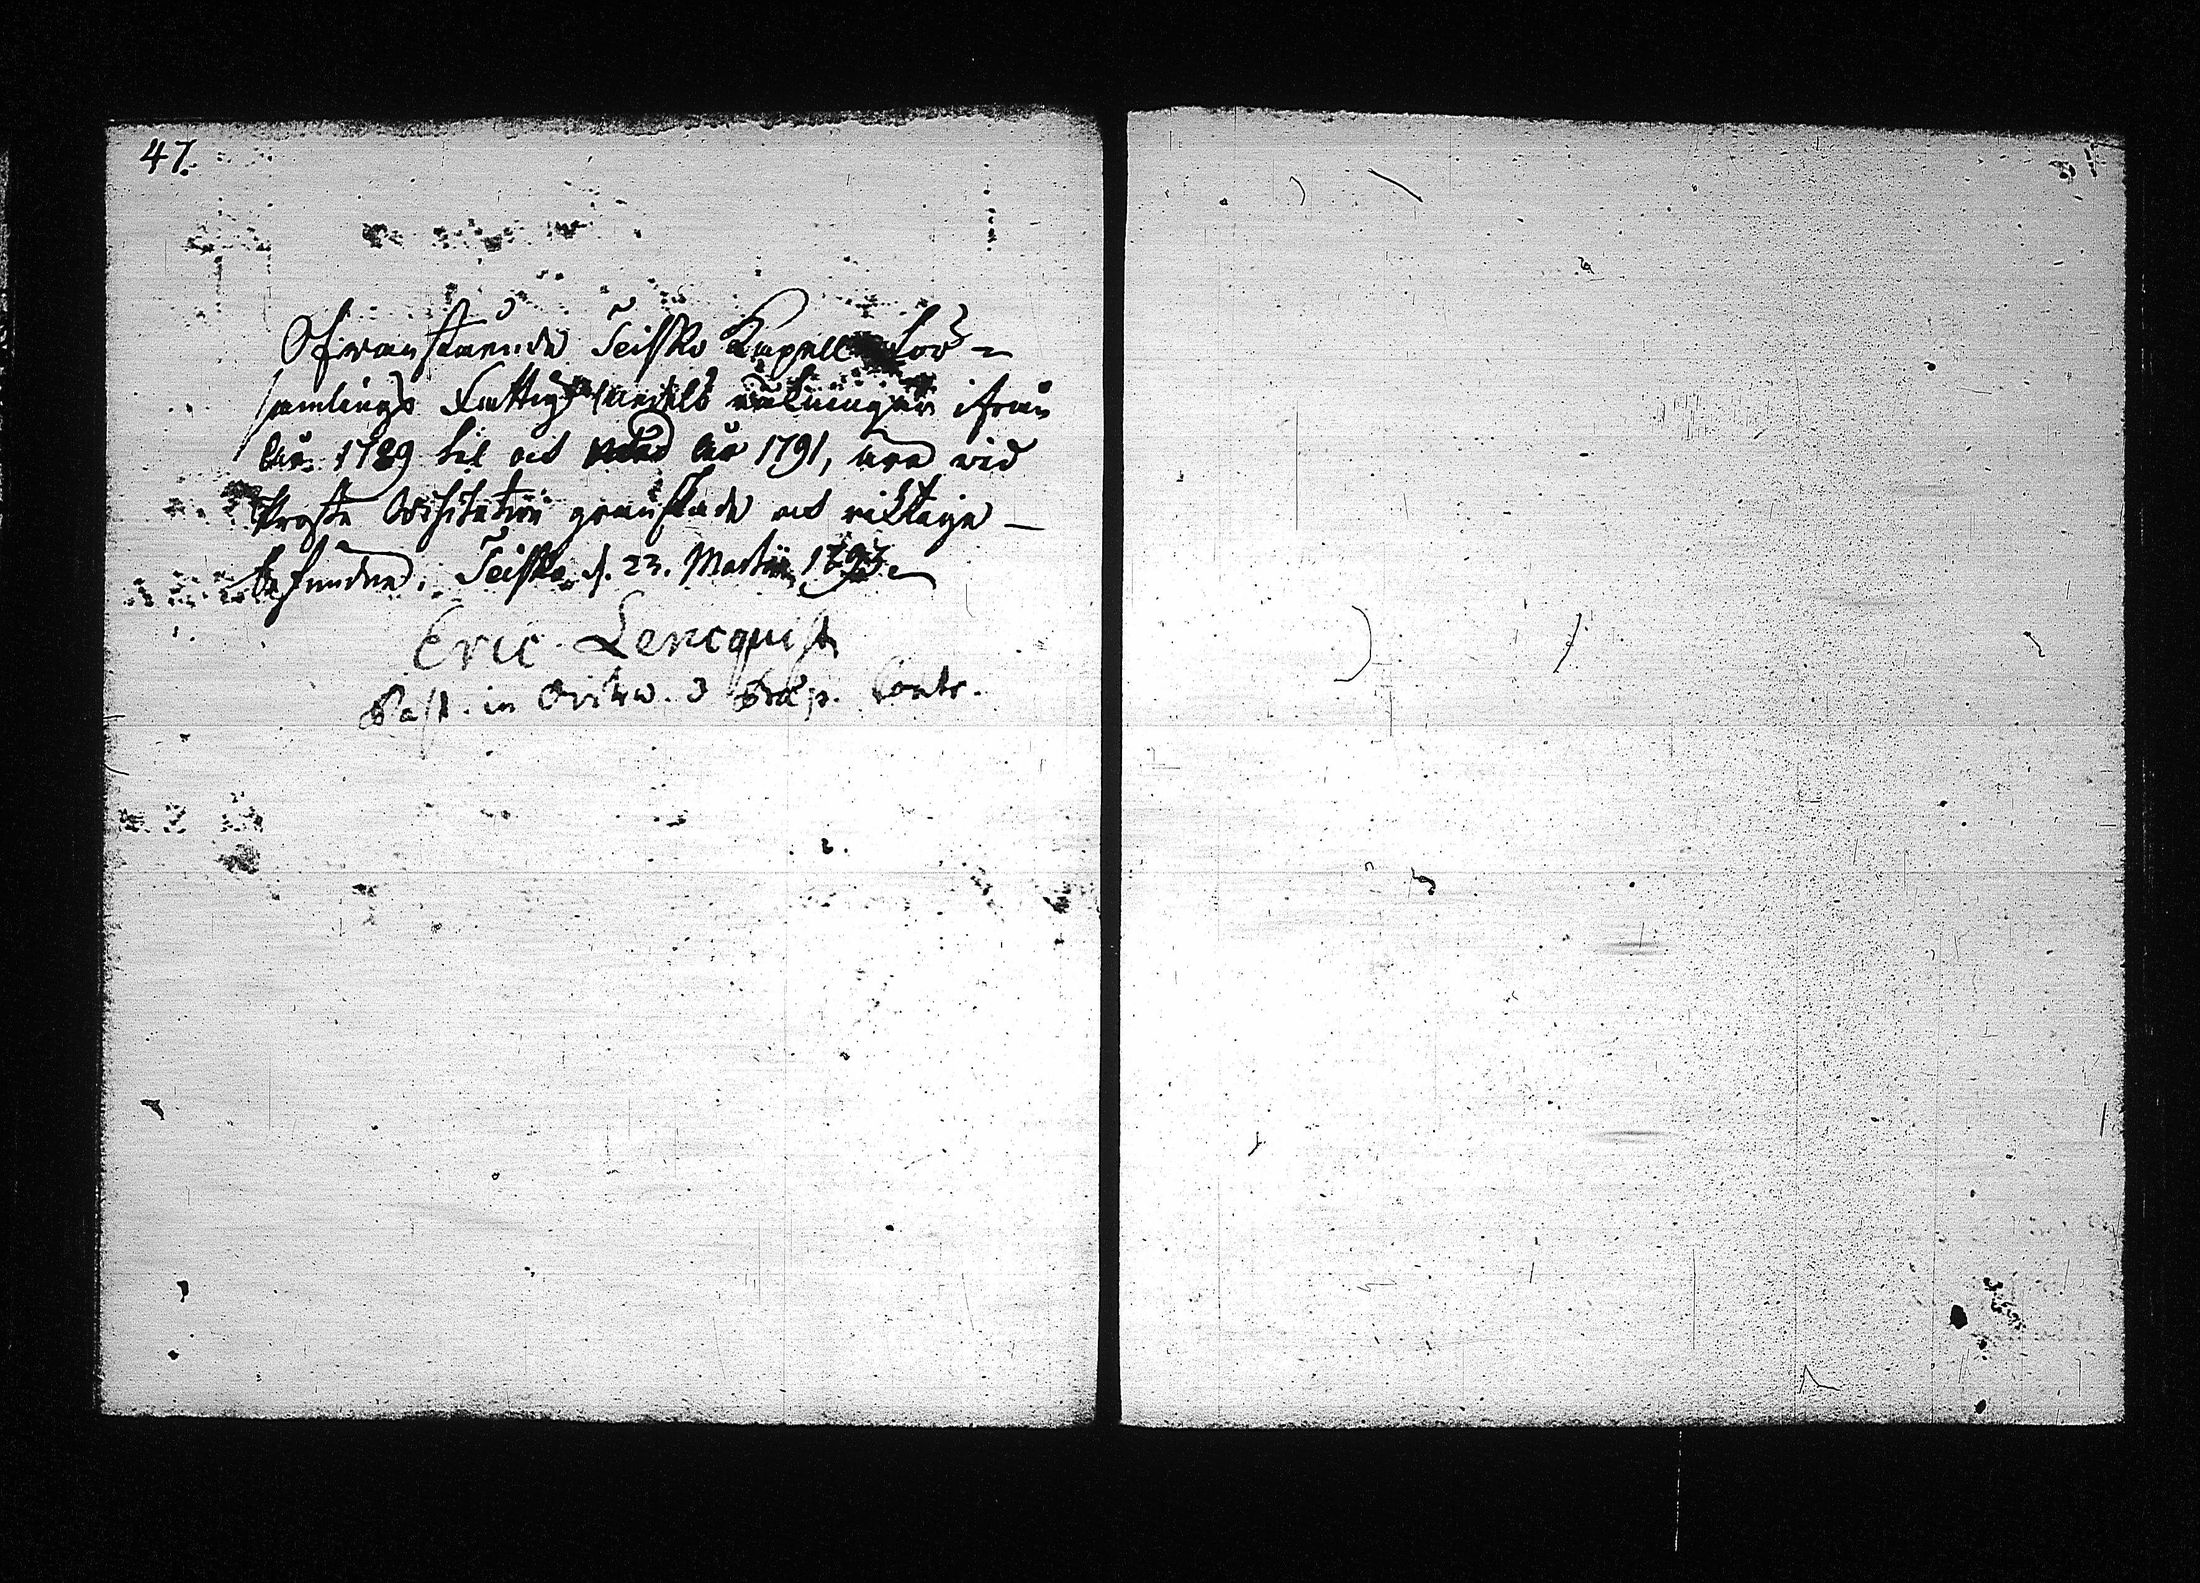 47.
Ofwanstående Teisko Kapell för-
samlings Fattig Cassas räkningar ifrån
år 1789 til och med år 1791, äro wid
Prosts Visitation granskade och riktige
befundne. Teisko d. 23. Martii 1793.
Eric Lencquist
Past. in Orihw. & Præp. Contr.